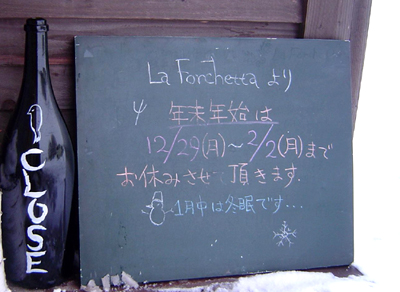 La Forchetta より
年末年始は
12/29(月)～2/2(月)まで
お休みさせて頂きます.
1月中は冬眠です...
CLOSE